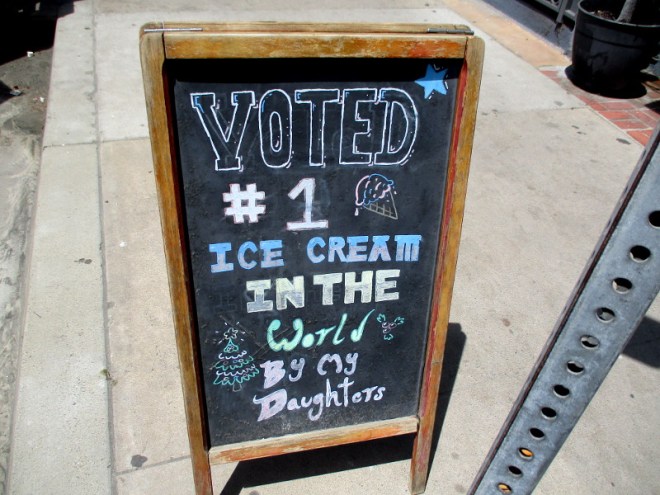 VOTED
#1
ICE CREAM
IN THE
World
By My
Daughters